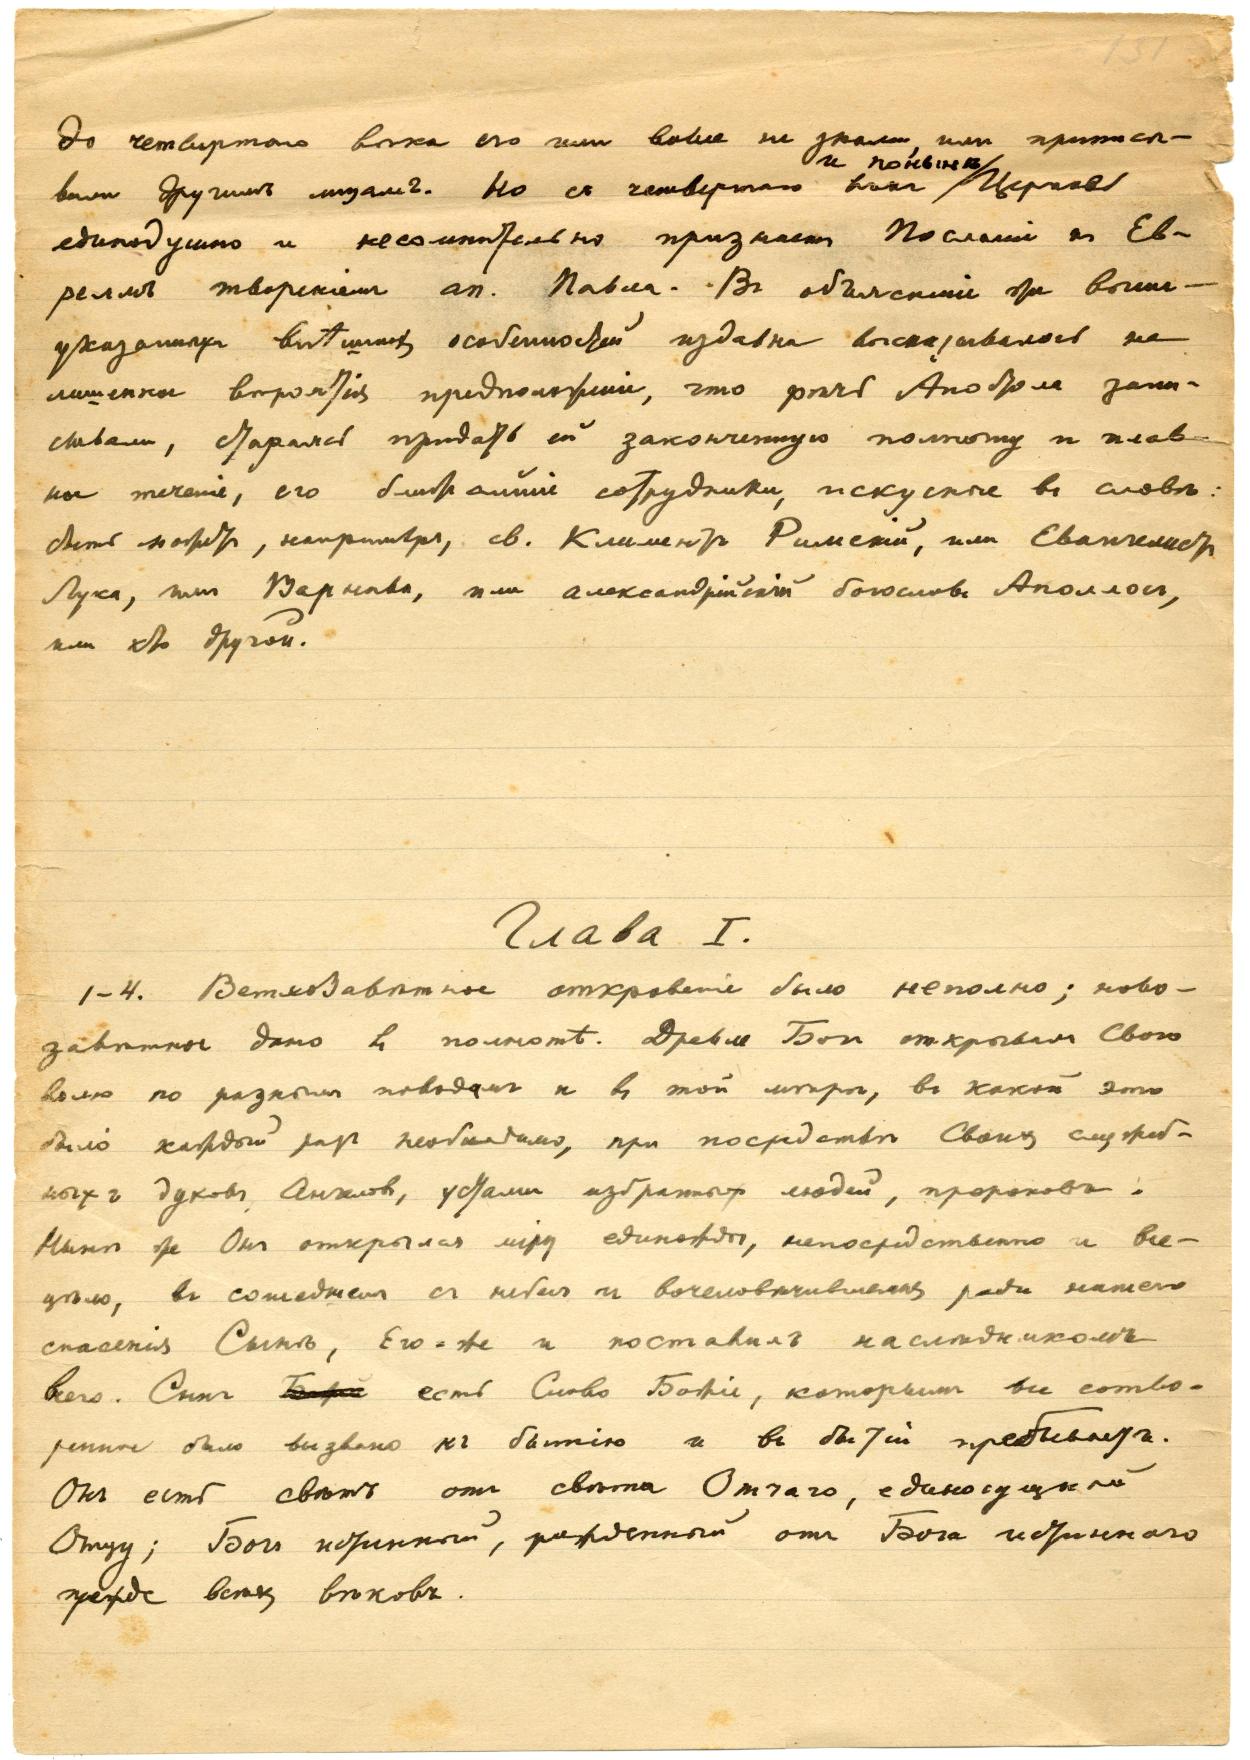 151
до четвертаго вѣка его или вовсе не знали, или приписы-
вали другимъ лицамъ. Но съ четвертаго вѣка и понынѣ Церковь
единодушно и несомнительно признаетъ Посланіе къ Ев-
реямъ твореніемъ ап. Павла. Въ объясненіе же выше-
указанныхъ внѣшнихъ особенностей издавна высказывалось не
лишенное вѣроятія предположеніе, что рѣчь Апостола запи-
сывали, стараясь придать ей законченную полноту и плав-
ное теченіе, его ближайшіе сотрудники, искусные въ словѣ:
быть можетъ, напримѣръ, св. Климентъ Римскій, или Евангелистъ
Лука, или Варнава, или александрійскій богословъ Аполлосъ,
или кто другой.
Глава I.
1-4. Ветхозавѣтное откровеніе было неполно; ново-
завѣтное дано въ полнотѣ. Древле Богъ открывалъ Свою
волю по разнымъ поводамъ и въ той мѣрѣ, въ какой это
было каждый разъ необходимо, при посредствѣ Своихъ служеб-
ныхъ духовъ Ангеловъ, устами избранныхъ людей, пророковъ.
Нынѣ же Онъ открылся міру единожды, непосредственно и все-
цѣло, въ сошедшемъ съ небесъ и вочеловѣчившемся ради нашего
спасенія Сынѣ, Его-же и поставилъ наслѣдникомъ
всего. Сынъ Божій есть Слово Божіе, которымъ все сотво-
ренное было вызвано къ бытію и въ бытіи пребываетъ.
Онъ есть свѣтъ отъ свѣта Отчаго, единосущный
Отцу; Богъ истинный, рожденный отъ Бога истиннаго
прежде всѣхъ вѣковъ.